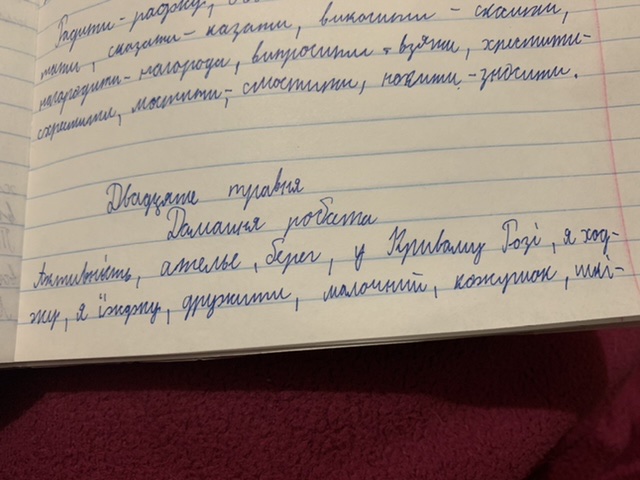 Радити-раджу,
тати, сказати-казати, викосити - скосити,
нагородити-нагорода, випросити - взяти, хрестити-
схрестити, мостити-смостити, носити-зносити.
Двадцяте травня
Домашня робота
Активність, ательє, берег, у Кривому Розі, я ход-
жу, я їжджу, дружити, молочний, кожушок, шкі-